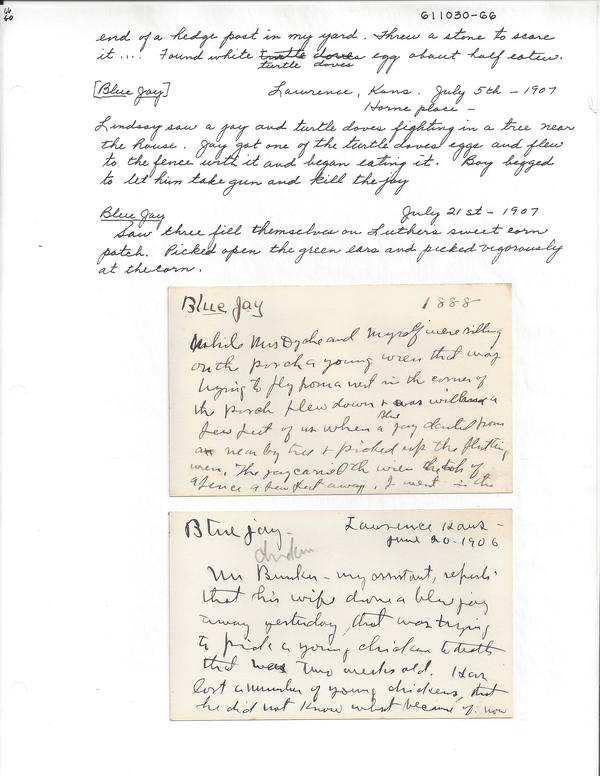 611030-66
end of a hedge post in my yard. Threw a stone to scare
it.... Found white turtle doves egg about half eaten.
turtle doves
[Blue Jay] Lawrence, Kans. July 5th - 1907
Home place -
Lindsay saw a jay and turtle doves fighting in a tree near
the house. Jay got one of the turtle doves eggs and flew
to the fence with it and began eating it. Boy begged
to let him take gun and kill the jay
Blue Jay July 21st - 1907
Saw three fill themselves on Luther's sweet corn
patch. Picked open the green ears and picked vigorously
at the corn.
Blue Jay 1888
While Mrs Dyche and myself were sitting
on the porch a young wren that was
trying to fly from a nest in the corner of
the porch flew down & was within a
few feet of us when a Blue jay darted from
a near by tree & picked up the fluttering
wren. The jay carried the wren to the top of
a fence a few feet away. I went in the
Blue jay - Lawrence Kans -
June 20 - 1906
chicken
Mr Bunker - my assistant, reports
that his wife drove a blue jay
away yesterday, that was trying
to pick a young chicken to death
that was two weeks old. Has
lost a number of young chickens, that
he did not know what became of. now